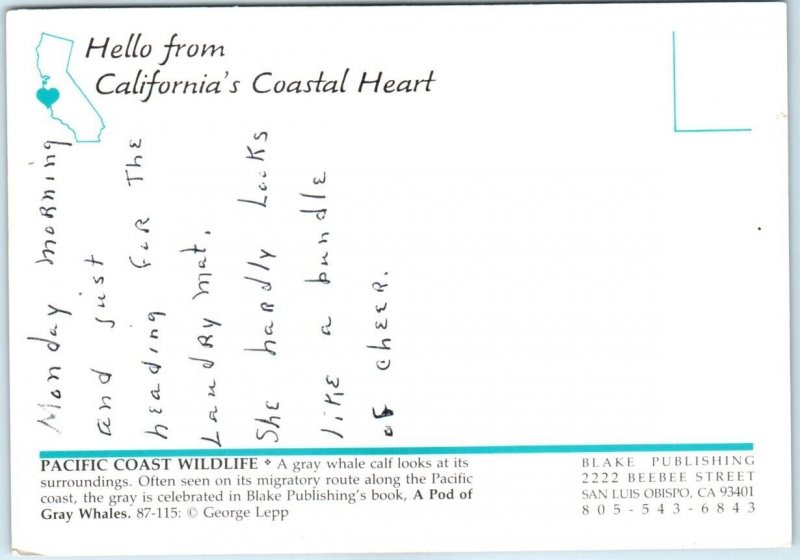 Hello from
California's Coastal Heart
Monday morning
and just
heading for the
Laundry mat.
She hardly Looks
like a bundle
of cheer.
PACIFIC COAST WILDLIFE ❖ A gray whale calf looks at its
surroundings. Often seen on its migratory route along the Pacific
coast, the gray is celebrated in Blake Publishing's book, A Pod of
Gray Whales. 87-115: © George Lepp
BLAKE PUBLISHING
2222 BEEBEE STREET
SAN LUIS OBISPO, CA 93401
805-543-6843